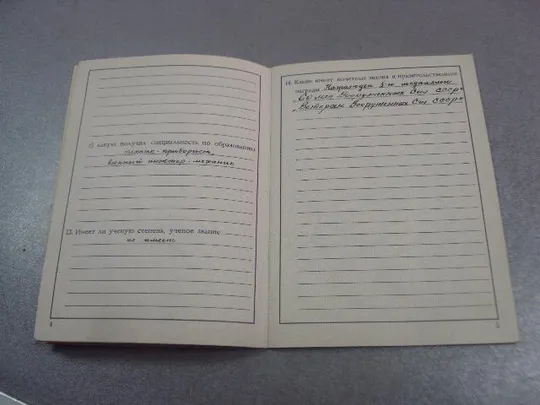 в) какую получил специальность по образованию
техник-приборист,
военный инженер-механик
13. Имеет ли ученую степень, ученое звание
не имеет
4
14. Какие имеет почетные звания и правительственные
награды Награжден 2-ю медалями
„60 лет Вооруженных Сил СССР“
„Ветеран Вооруженных Сил СССР“
5